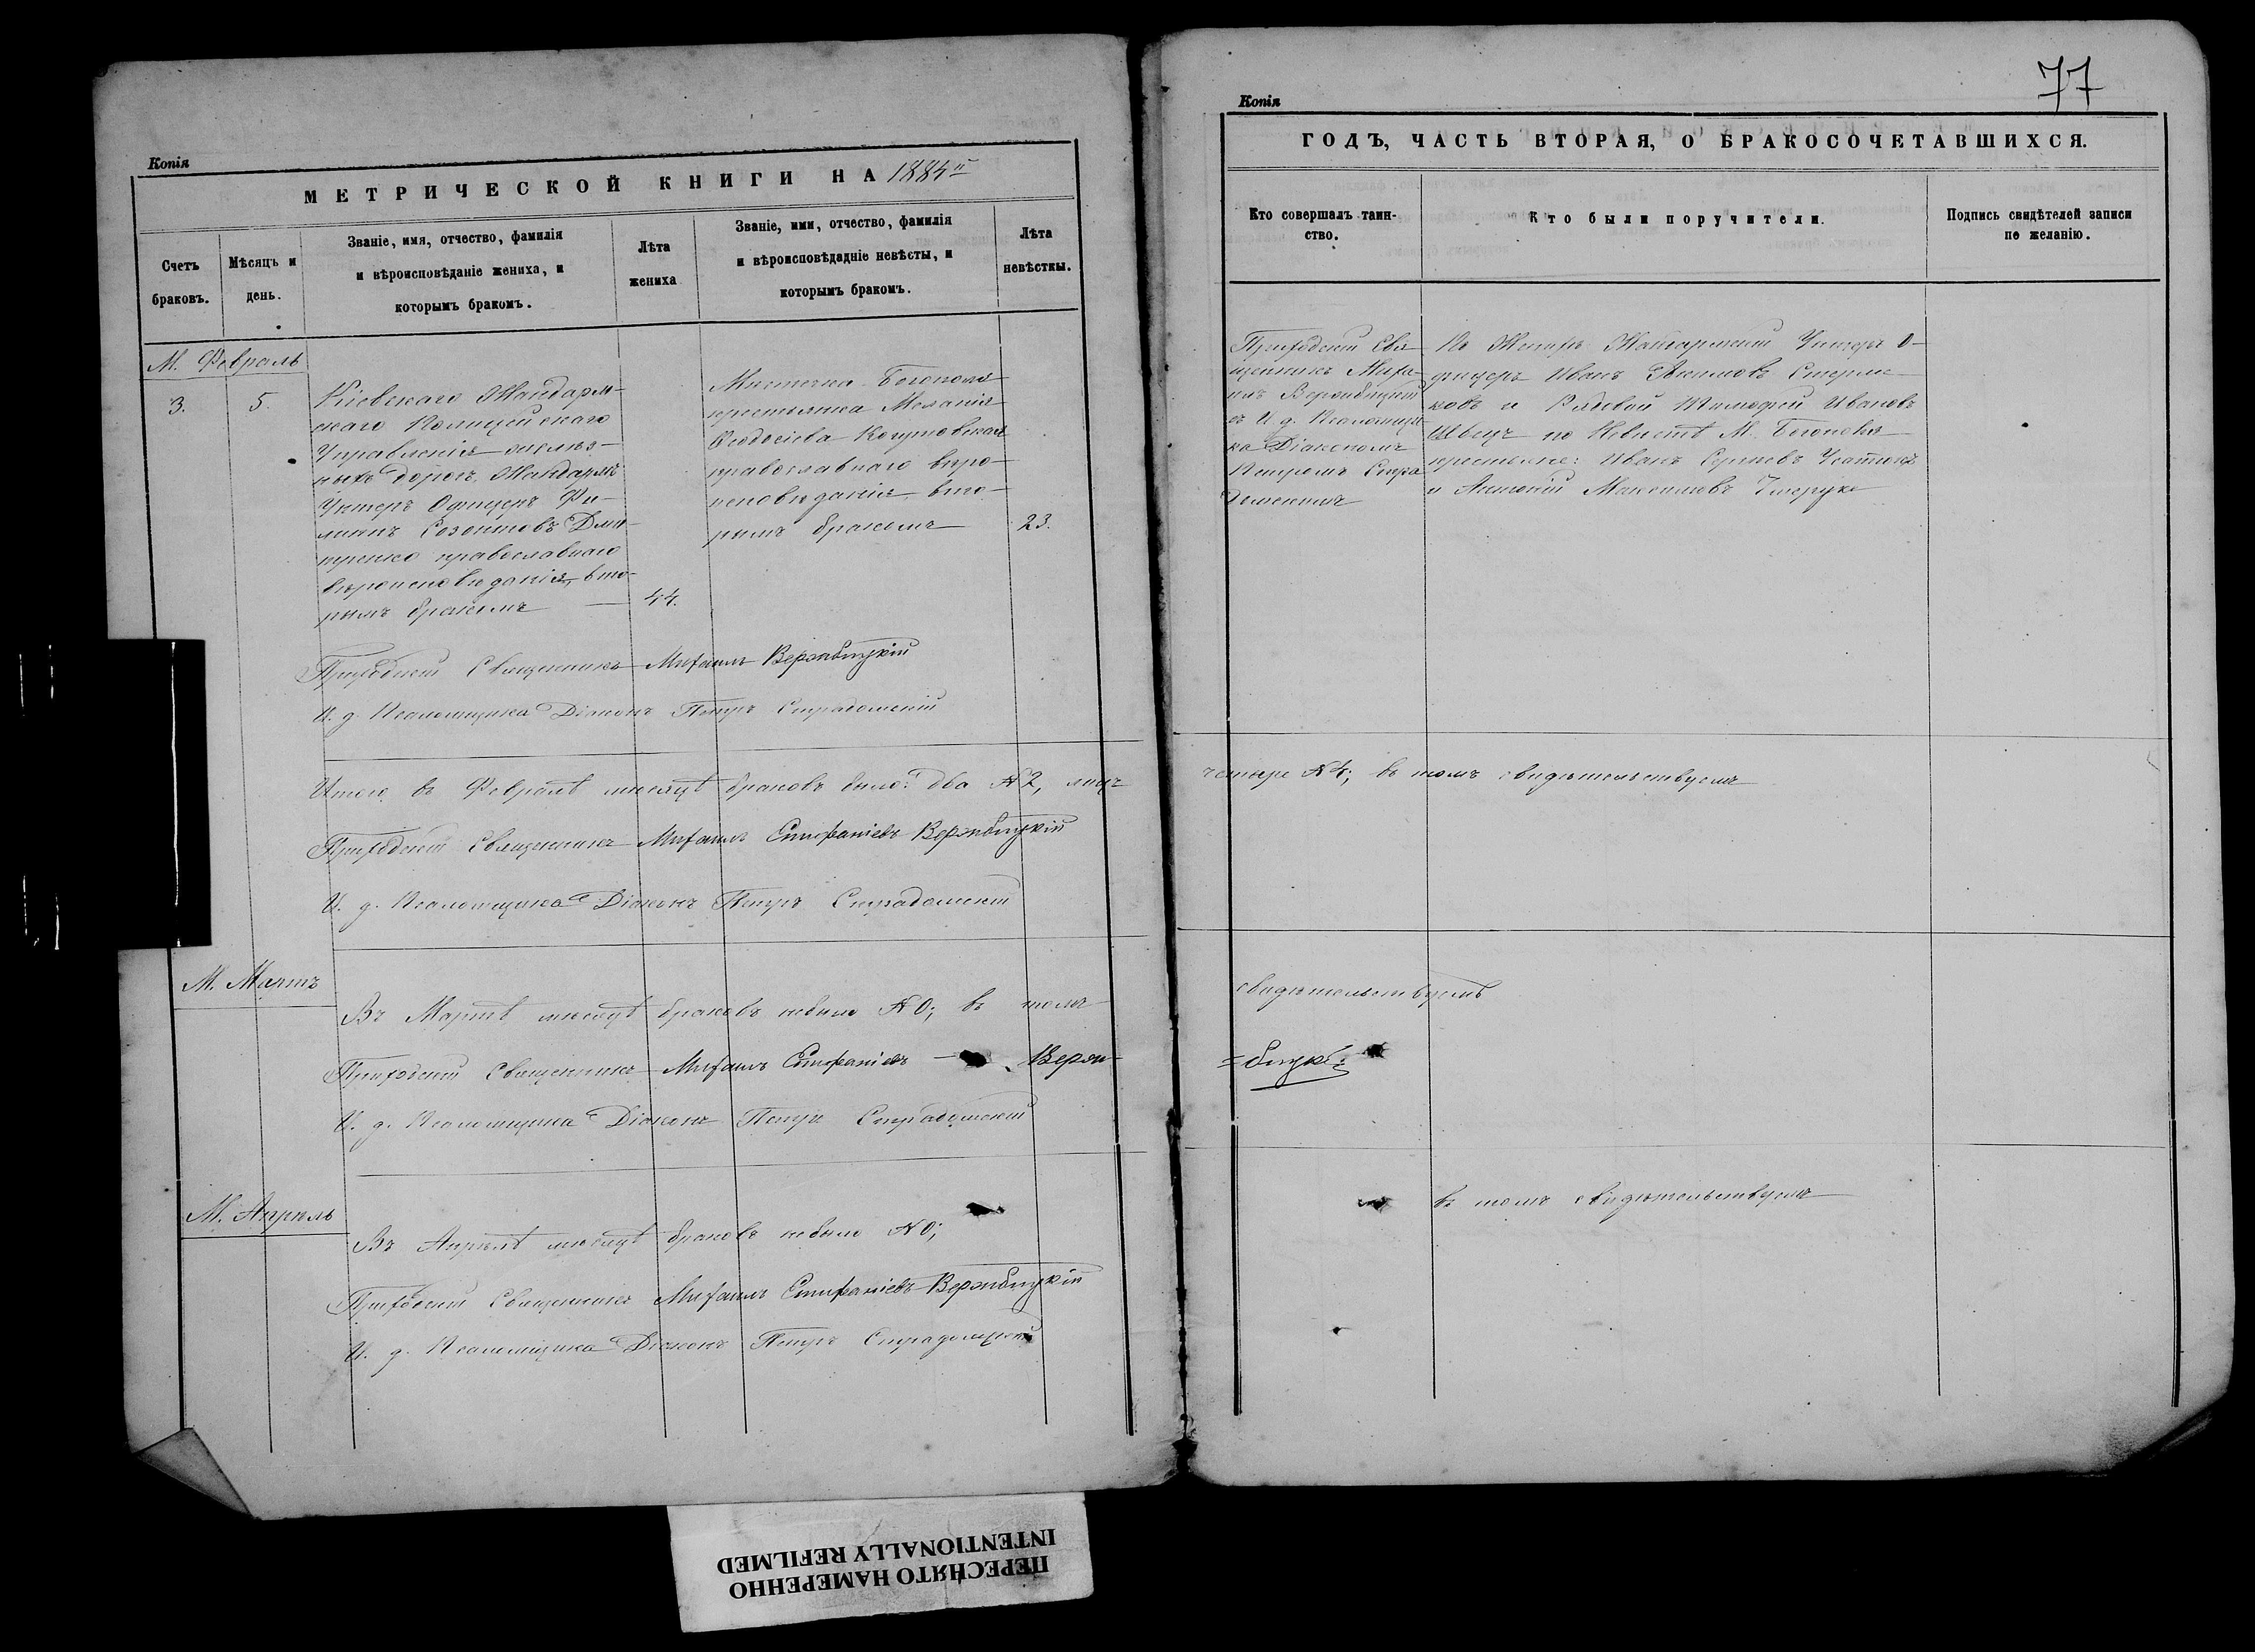 Копія
МЕТРИЧЕСКОЙ КНИГИ НА 1884й
Счетъ браковъ.
Мѣсяцъ и день.
Званіе, имя, отчество, фамилія и вѣроисповѣданіе жениха, и которымъ бракомъ.
Лѣта жениха
Званіе, имя, отчество, фамилія и вѣроисповѣдадніе невѣсты, и которымъ бракомъ.
Лѣта невѣсткы.
М. Февраль
3.
5.
Кіевскаго Жандарм-
скаго Полицейскаго
Управленія желѣз-
ныхъ дорогъ, Жандармъ
Унтеръ Офицеръ Фи-
липпъ Созонтовъ Дми-
тренко православнаго
вѣроисповѣданія, вто-
рымъ бракомъ
44.
Мѣстечка Богополя
крестьянка Меланія
Ѳеодосіева
православнаго вѣро-
исповѣданія вто-
рымъ бракомъ
23.
Приходскій Священникъ Михаилъ Вержбицкій
И. д. Псаломщика Діаконъ Петръ Страдомскій
Итого въ Февралѣ мѣсяцѣ браковъ было: два №2, лицъ
Приходскій Священникъ Михаилъ Стефаніевъ Вержбицкій
И. д. Псаломщика Діаконъ Петръ Страдомскій
М. Мартъ
Въ Мартѣ мѣсяцѣ браковъ небыло №0; въ томъ
Приходскій Священникъ Михаилъ Стефаніевъ Верж-
И. д. Псаломщика Діаконъ Петръ Страдомскій
М. Апрѣль
Въ Апрѣлѣ мѣсяцѣ браковъ небыло №0;
Приходскій Священникъ Михаилъ Стефаніевъ Вержбицкій
И. д. Псаломщика Діаконъ Петръ Страдомскій
77
Копія
ГОДЪ, ЧАСТЬ ВТОРАЯ, О БРАКОСОЧЕТАВШИХСЯ.
Кто совершалъ таин-
ство.
Кто были поручители.
Подпись свидѣтелей записи
по желанію.
Приходскій Свя-
щенникъ Миха-
илъ Вержбицкій
съ И. д. Псаломщи-
ка Діакономъ
Петромъ Стра-
домскимъ
По Женихѣ: Жандармскій Унтеръ О-
фицеръ Иванъ
и Рядовой Тимофей Ивановъ
Швецъ по Невѣстѣ М. Богополя
крестьяне: Иванъ Сергіевъ
и Антоній Максимовъ
четыре №4; въ томъ свидѣтельствуемъ
свидѣтельствуемъ
=бицкі
въ томъ свидѣтельствуемъ
ПЕРЕСНЯТО НАМЕРЕННО
INTENTIONALLY REFILMED